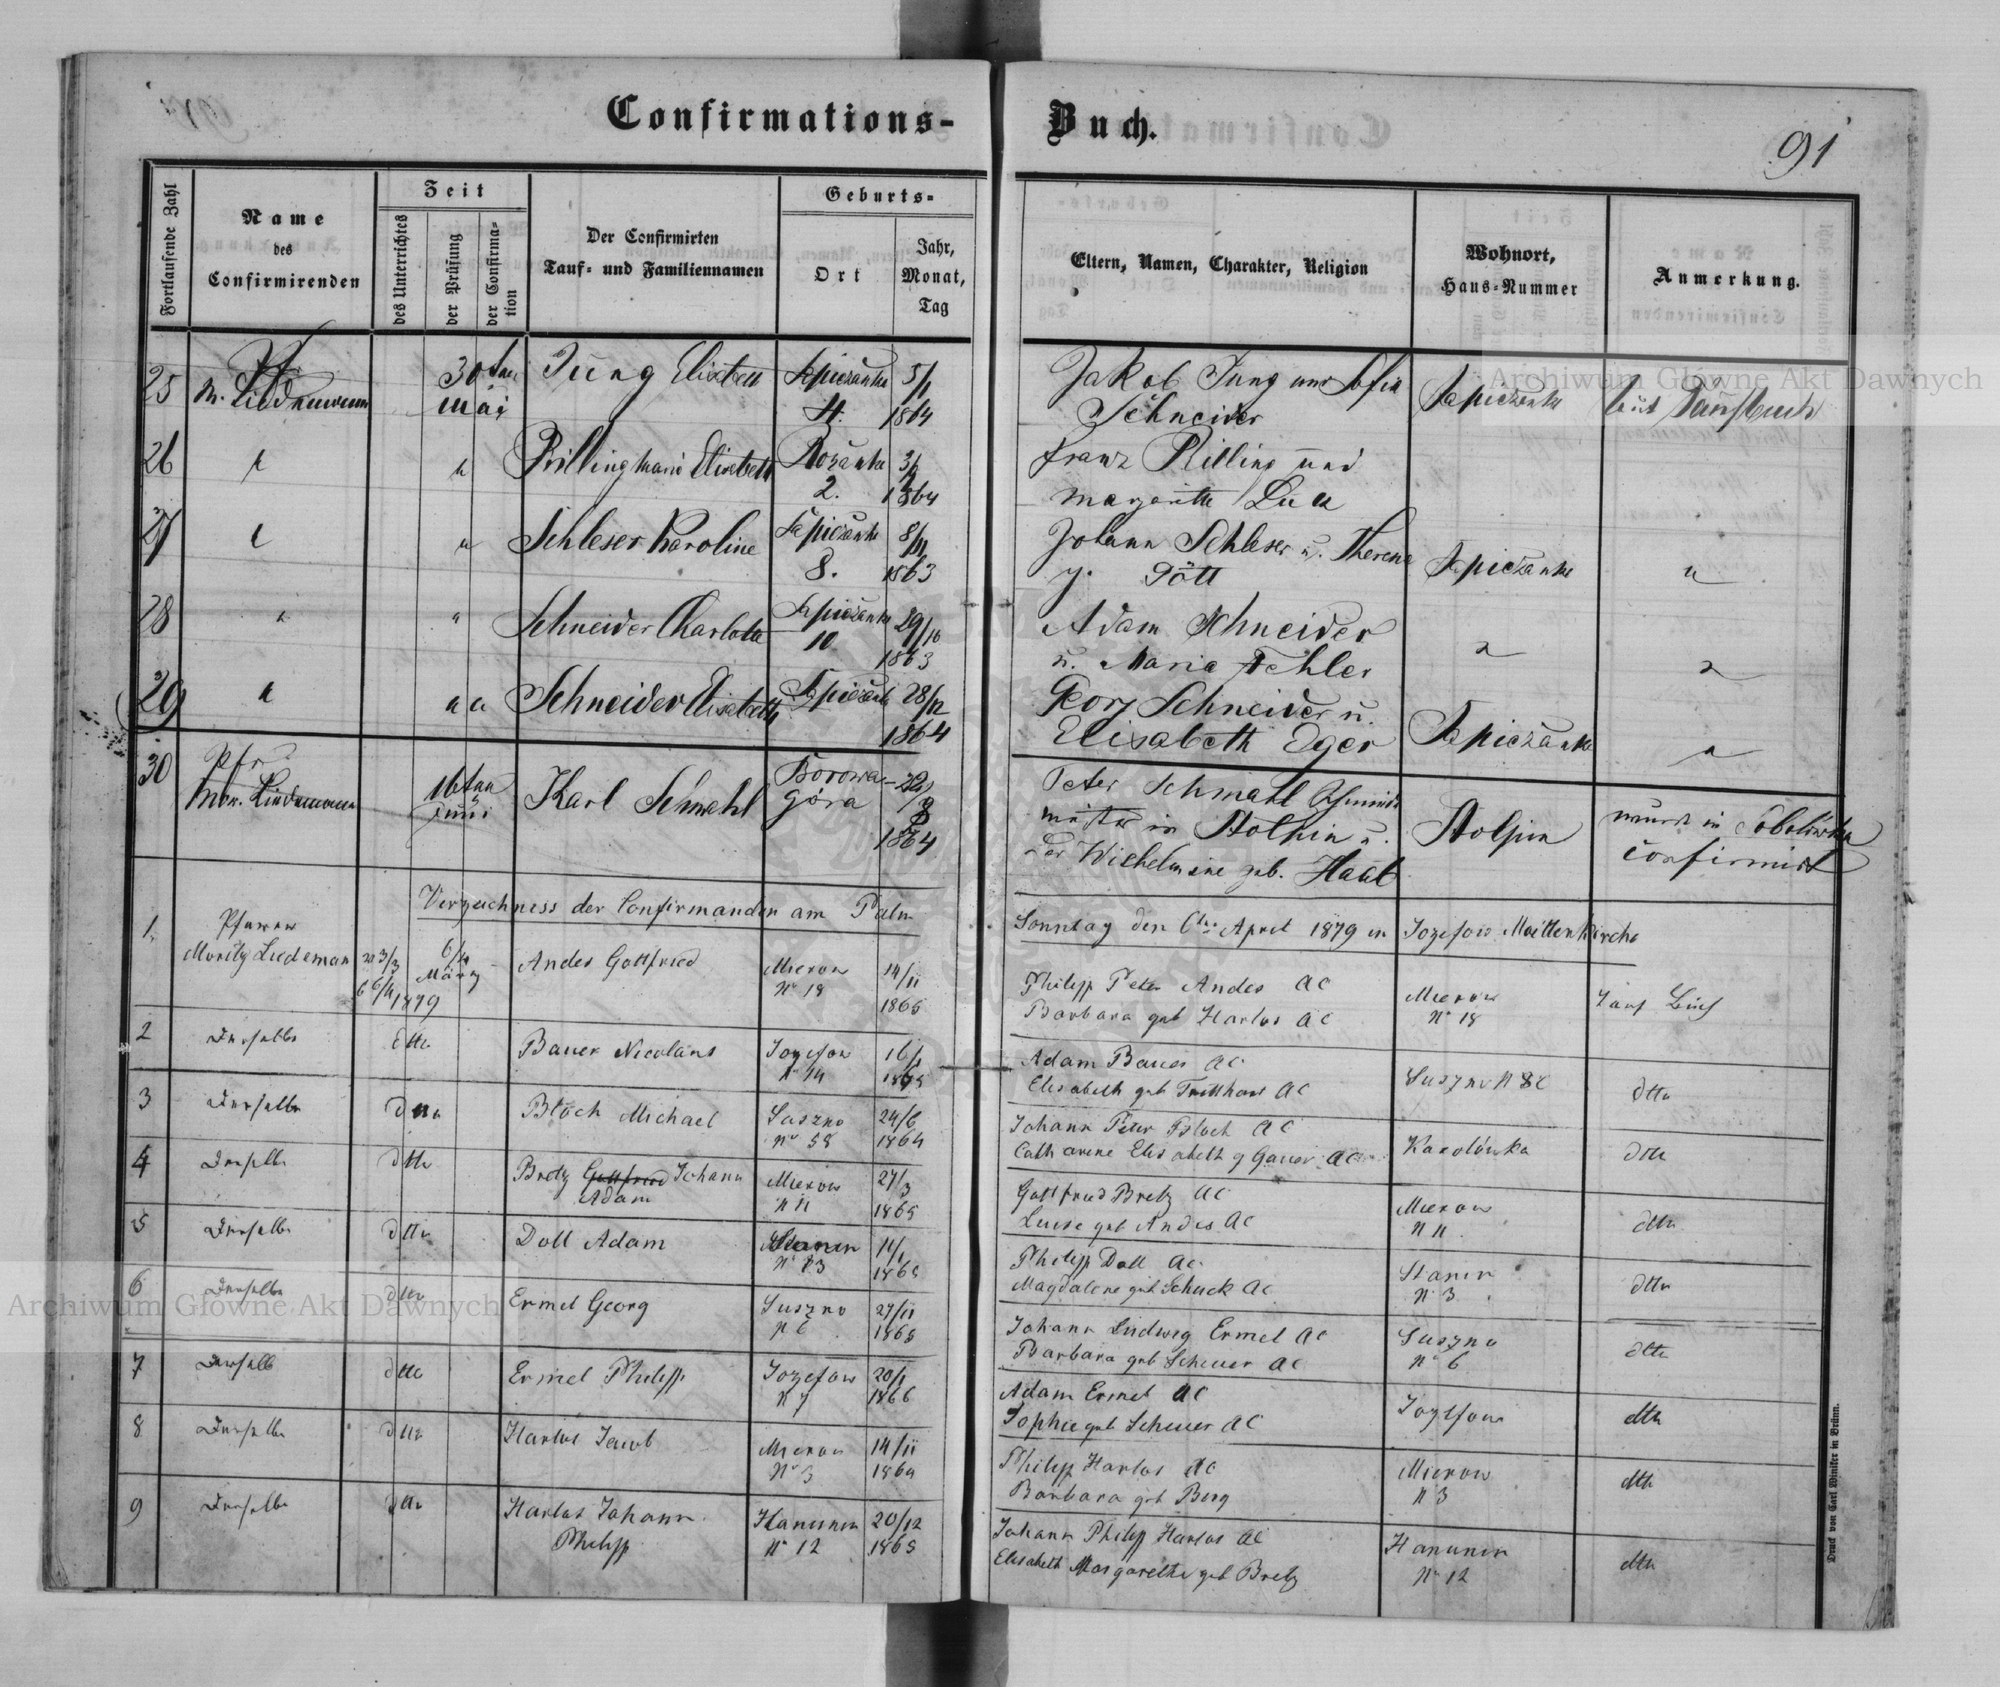 Confirmations-
Buch.
91
Fortlaufende Zahl
Name
des
Confirmirenden
Zeit
des Unterrichtes
der Prüfung
der Confirma-
tion
Der Confirmirten
Tauf- und Familiennamen
Geburts-
Ort
Jahr,
Monat,
Tag
Eltern, Namen, Charakter, Religion
Wohnort,
Haus-Nummer
Anmerkung.
25
Pfr
M. Liedemann
30ten
Mai
Jung Elisabeth
Sapieżanka
5/1
1864
Jakob Jung und Sofia
Schneider
Sapieżanka
laut Taufbuch
26
"
"
Rilling Maria Elisabeth
Rożanka
2.
1864
Franz Rilling und
Margarethe Lutz
27
"
"
Schleser Karoline
Sapieżanka
8.
8/11
1863
Johann Schleser u. Therese
g. Pött
Sapieżanka
"
28
"
"
Schneider Charlotte
Sapieżanka
10
29/10
1863
Adam Schneider
u. Maria Fehler
"
"
29
"
" "
Schneider Elisabeth
Sapieżanka
28/12
1864
Georg Schneider u.
Elisabeth Eger
Sapieżanka
"
30
Pfr
Mor. Liedemann
16ten
Juni
Karl Schmahl
Borowa-
Góra
22/8
1864
Peter Schmahl Schmied
meister in Stolpin u.
der Wilhelmine geb. Haal
Stolpin
wurde in Sobolówka
confirmirt
Verzeichniss der Confirmanden am Palm
Sonntag den 6ten April 1879 in Jozefow Mutterkirche
1.
Pfarrer
Moritz Liedeman
6/4
März
1879
Andes Gottfried
Mierow
No 18
14/11
1865
Philipp Peter Andes AC
Barbara geb Harlos AC
Mierow
No 18
Tauf Buch
2
Derselbe
dtto
Bauer Nicolaus
Jozefow
No 14
16/1
1865
Adam Bauer AC
Elisabeth geb Tritthart AC
Suszno N 8
dtto
3
Derselbe
dtto
Bloch Michael
Suszno
No 58
24/6
1864
Johann Peter Bloch AC
Catharine Elisabeth g Gauer AC
Karolówka
dtto
4
Derselbe
dtto
Bretz Gottfried Johann
Adam
Mierow
N 11
27/3
1865
Gottfried Bretz AC
Luise geb Andes AC
Mierow
N 11.
dtto
5
Derselbe
dtto
Doll Adam
Stanin
No 23
11/1
1865
Philipp Doll AC
Magdalene geb Schuck AC
Stanin
No 3
dtto
6
Derselbe
dtto
Ermel Georg
Suszno
N 6
27/11
1865
Johann Ludwig Ermel AC
Barbara geb Scheuer AC
Suszno
No 6
dtto
7
Derselbe
dtto
Ermel Philipp
Jozefow
N 7
20/1
1866
Adam Ermel AC
Sophie geb Scheuer AC
Jozefow
dtto
8
Derselbe
dtto
Harlos Jacob
Mierow
No 3
14/11
1864
Philipp Harlos AC
Barbara geb Berg
Mierow
N 3
dtto
9
Derselbe
dtto
Harlos Johann
Philipp
Hanunin
No 12
20/12
1865
Johann Philipp Harlos AC
Elisabeth Margarethe geb Bretz
Hanunin
No 12
dtto
Druck von Carl Winiker in Brünn.
Archiwum Główne Akt Dawnych
Archiwum Główne Akt Dawnych